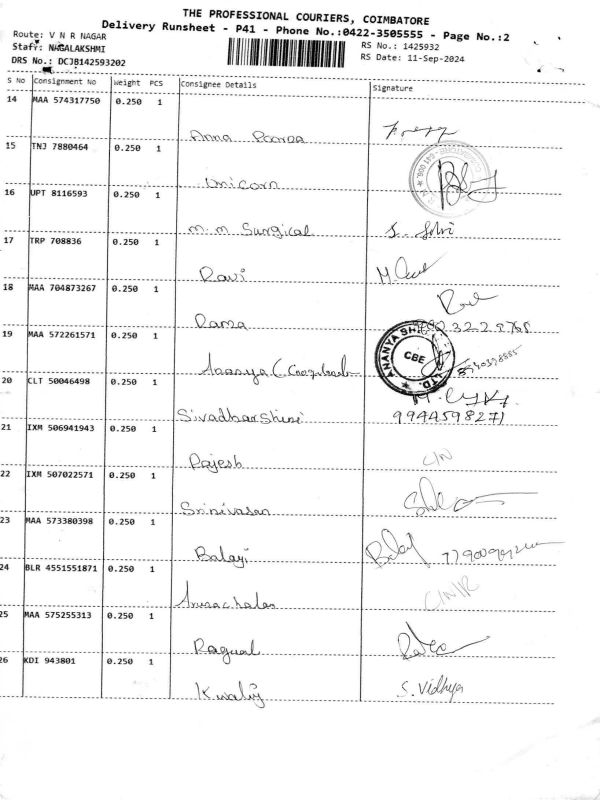 THE PROFESSIONAL COURIERS, COIMBATORE
Delivery Runsheet - P41 - Phone No.:0422-3505555 - Page No.:2
Route: V N R NAGAR
Staff: NAGALAKSHMI
DRS No.: DCJB142593202
RS No.: 1425932
RS Date: 11-Sep-2024
S No Consignment No Weight PCS Consignee Details Signature
14 MAA 574317750 0.250 1
Anna Poorna
15 TNJ 7880464 0.250 1
Unicorn
16 UPT 8116593 0.250 1
M. M Surgical S.
17 TRP 708836 0.250 1
Ravi
18 MAA 704873267 0.250 1
Rama
19 MAA 572261571 0.250 1
CBE LTD.
20 CLT 50046498 0.250 1
Sivadharshini 9944598271
21 IXM 506941943 0.250 1
Rajesh C/N
22 IXM 507022571 0.250 1
Srinivasan
23 MAA 573380398 0.250 1
Balaji
24 BLR 4551551871 0.250 1
Arunachalam C/N/R
25 MAA 575255313 0.250 1
26 KDI 943801 0.250 1
S. Vidhya